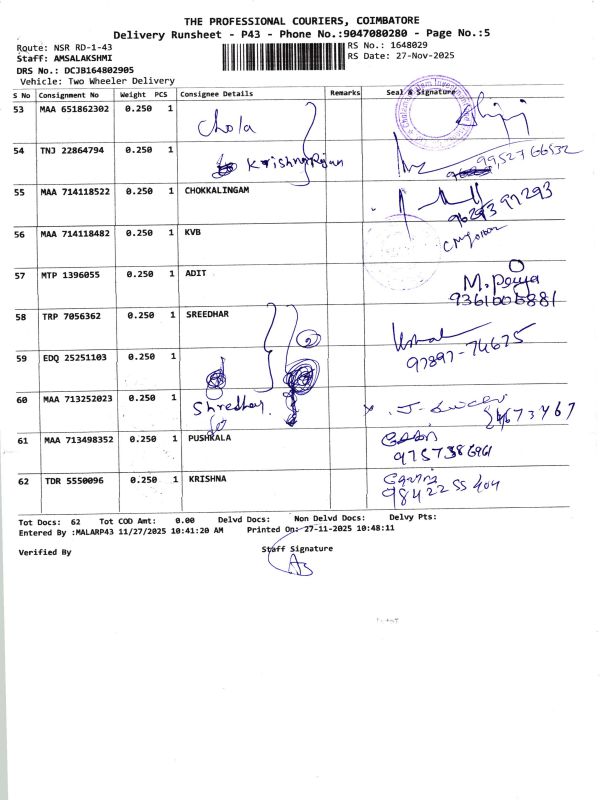 THE PROFESSIONAL COURIERS, COIMBATORE
Delivery Runsheet - P43 - Phone No.:9047080280 - Page No.:5
Route: NSR RD-1-43
RS No.: 1648029
Staff: AMSALAKSHMI
RS Date: 27-Nov-2025
DRS No.: DCJB164802905
Vehicle: Two Wheeler Delivery
S No Consignment No Weight PCS Consignee Details Remarks Seal & Signature
53 MAA 651862302 0.250 1 Chola
54 TNJ 22864794 0.250 1 Krishna Rajan
9952766532
55 MAA 714118522 0.250 1 CHOKKALINGAM
96293 97293
56 MAA 714118482 0.250 1 KVB
57 MTP 1396055 0.250 1 ADIT
M. Pouja
58 TRP 7056362 0.250 1 SREEDHAR
97897-74675
59 EDQ 25251103 0.250 1
60 MAA 713252023 0.250 1 Shredhar
61 MAA 713498352 0.250 1 PUSHKALA
62 TDR 5550096 0.250 1 KRISHNA
98422 55 404
Tot Docs: 62 Tot COD Amt: 0.00 Delvd Docs: Non Delvd Docs: Delvy Pts:
Entered By :MALARP43 11/27/2025 10:41:20 AM Printed On: 27-11-2025 10:48:11
Verified By
Staff Signature